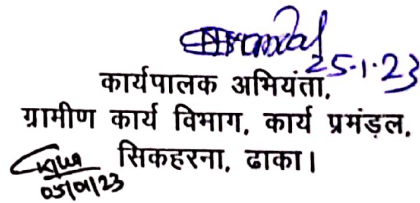 25.1.23
कार्यपालक अभियंता,
ग्रामीण कार्य विभाग, कार्य प्रमंड़ल,
सिकहरना, ढाका।
05/01/23